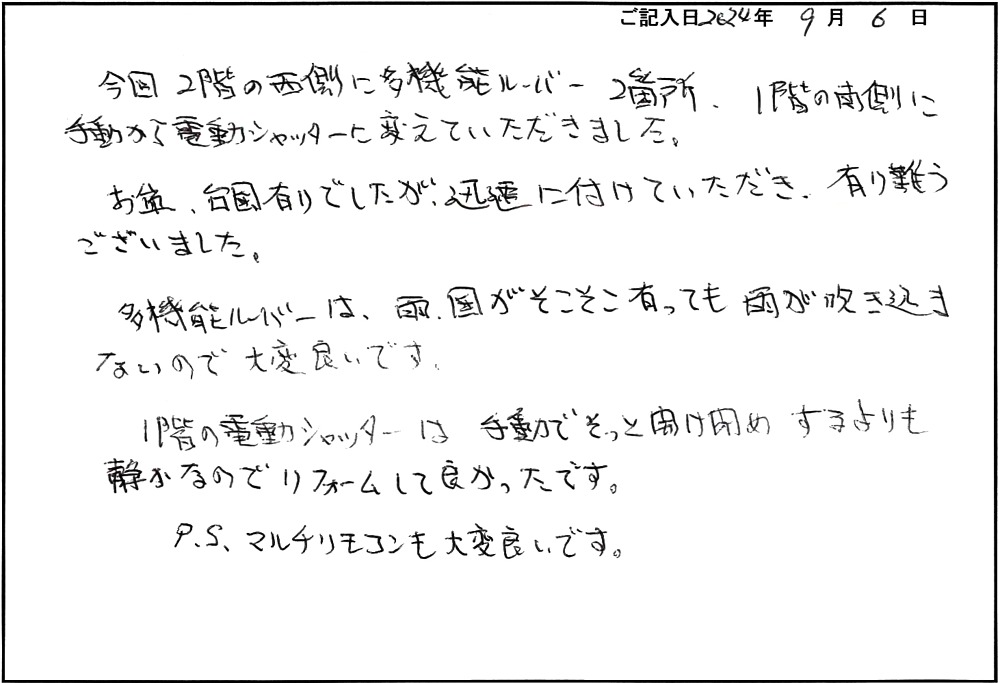 ご記入日2024年 9月 6日
今回 2階の西側に多機能ルーバー 2箇所、1階の南側に
手動から電動シャッターに変えていただきました。
お盆、台風有りでしたが、迅速に付けていただき、有り難う
ございました。
多機能ルーバーは、雨、風がそこそこ有っても雨が吹き込ま
ないので大変良いです。
1階の電動シャッターは 手動でそっと開け閉め するよりも
静かなのでリフォームして良かったです。
P.S、マルチリモコンも大変良いです。